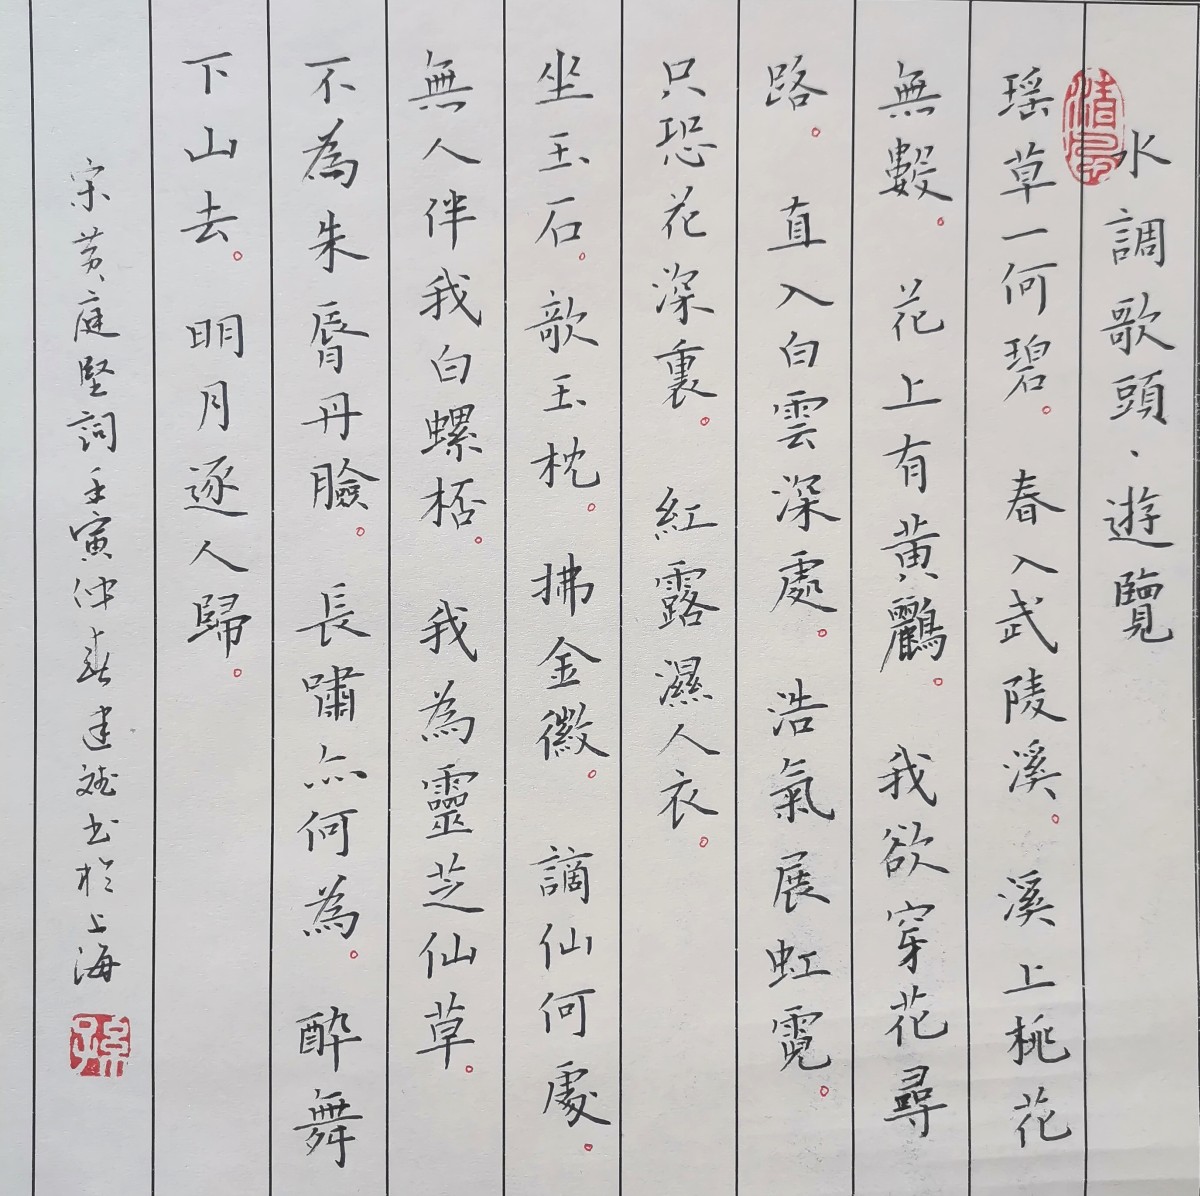 水調歌頭、遊覽
瑶草一何碧。春入武陵溪。溪上桃花
無數。花上有黄鸝。我欲穿花尋
路。直入白雲深處。浩氣展虹霓。
只恐花深裏。紅露濕人衣。
坐玉石。歌玉枕。拂金徽。謫仙何處。
無人伴我白螺桮。我為靈芝仙草。
不為朱脣丹臉。長嘯亦何為。醉舞
下山去。明月逐人歸。
宋黄庭堅詞壬寅仲春建斌书於上海